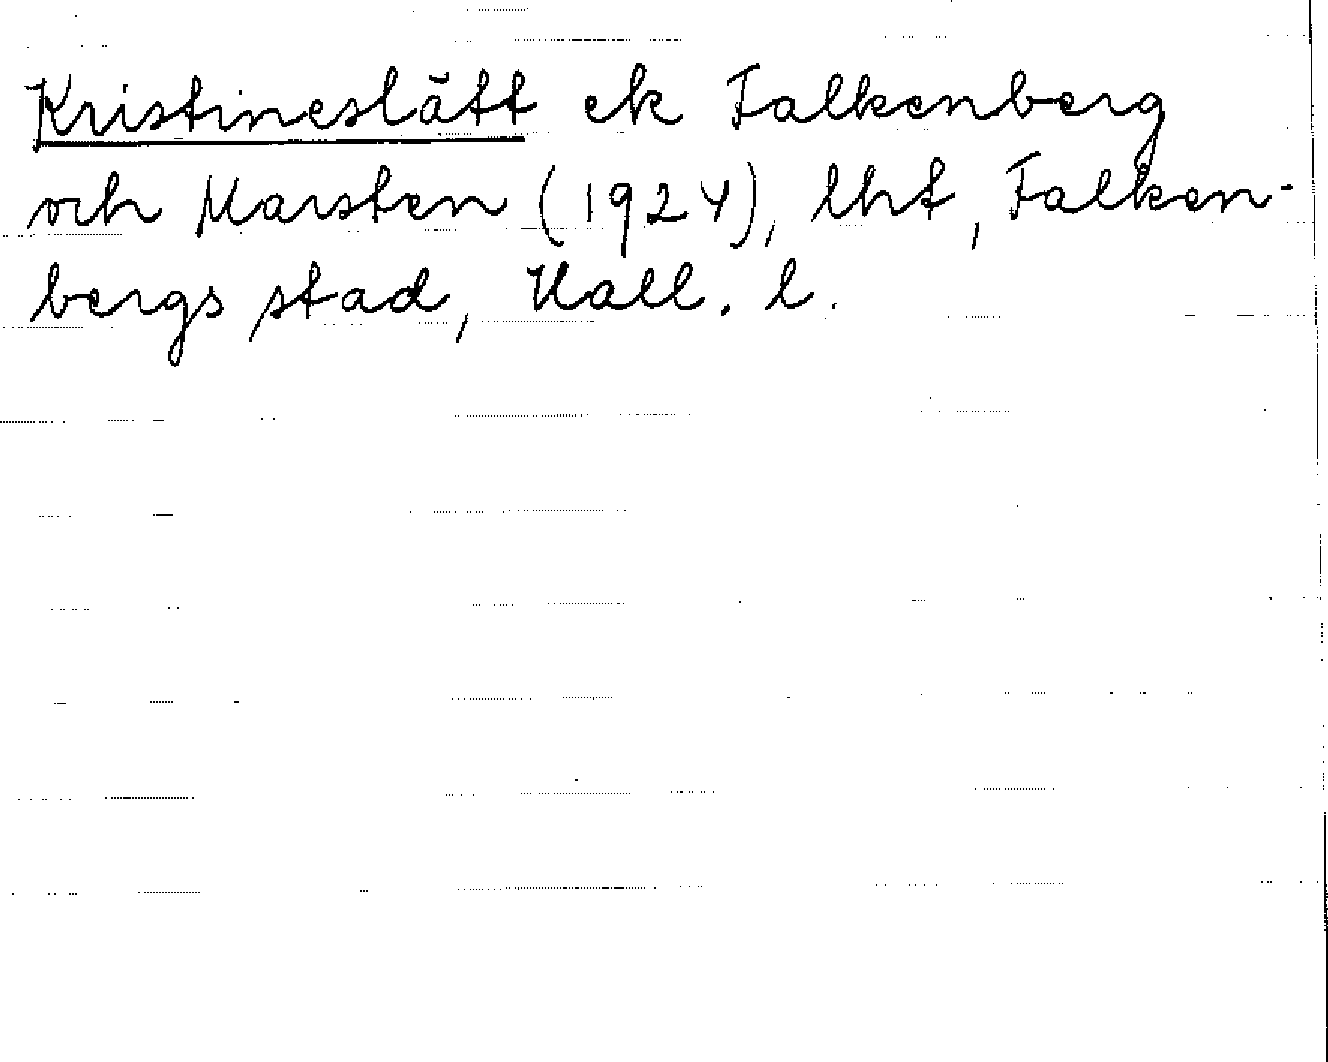 Kristineslätt ek Falkenberg
och Marsten (1924), lht, Falken-
bergs stad, Hall. l.